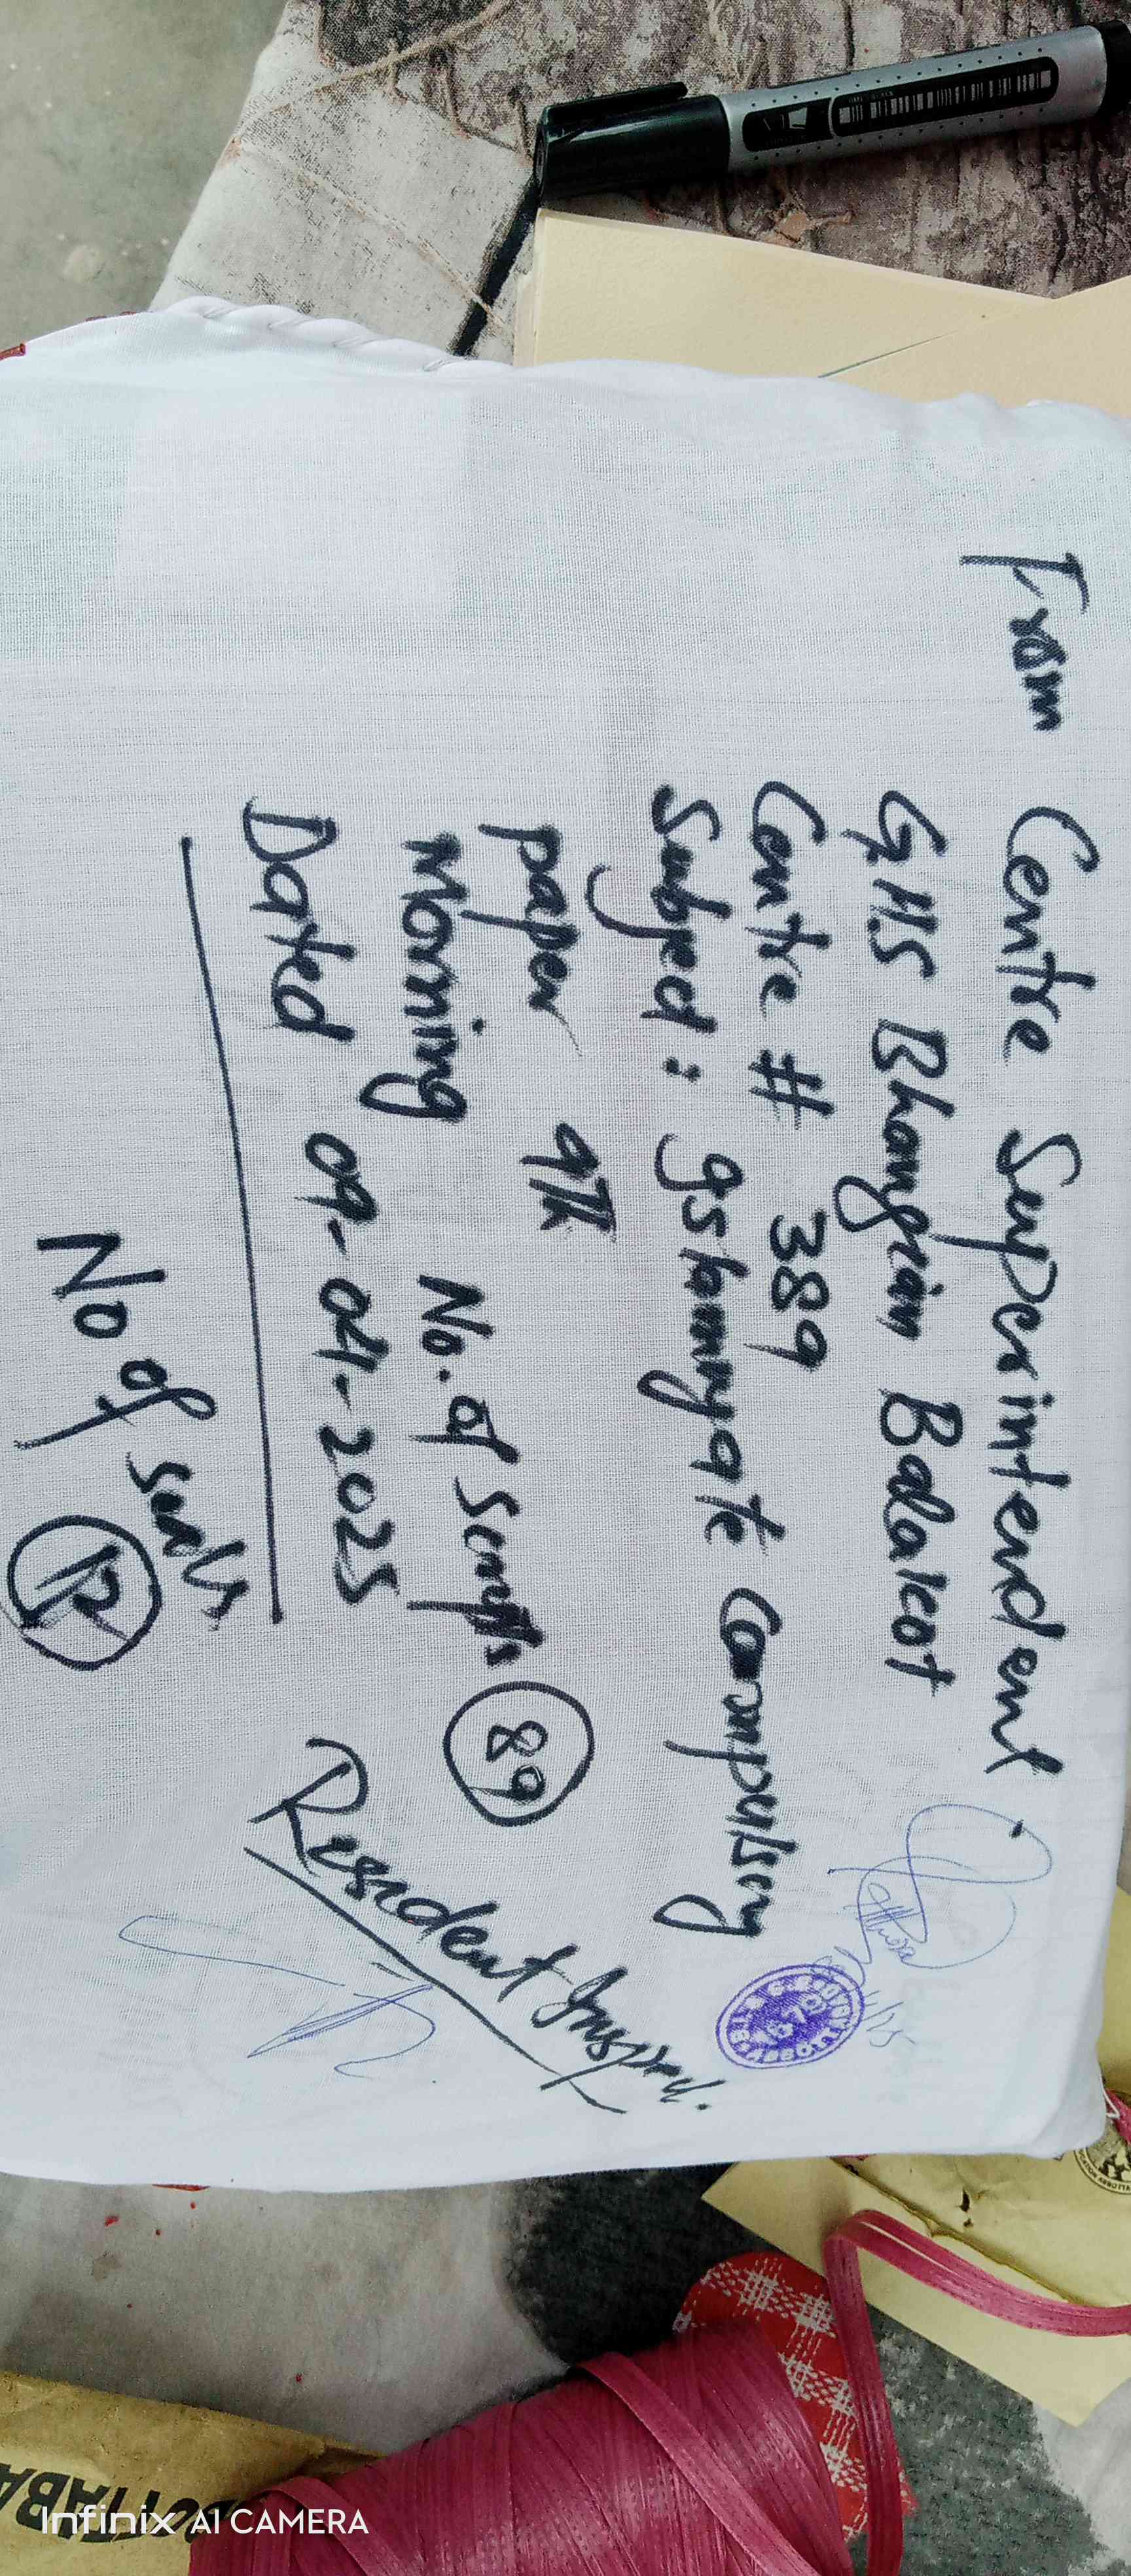 From Centre Superintendent
GHS Bhangian Balakot
Centre # 389
Subject: Islamiyate Compulsory
paper 9th
Morning No. of Scripts 89
Dated 09-04-2025
Resident Inspect.
No of seals
Infinix AI CAMERA